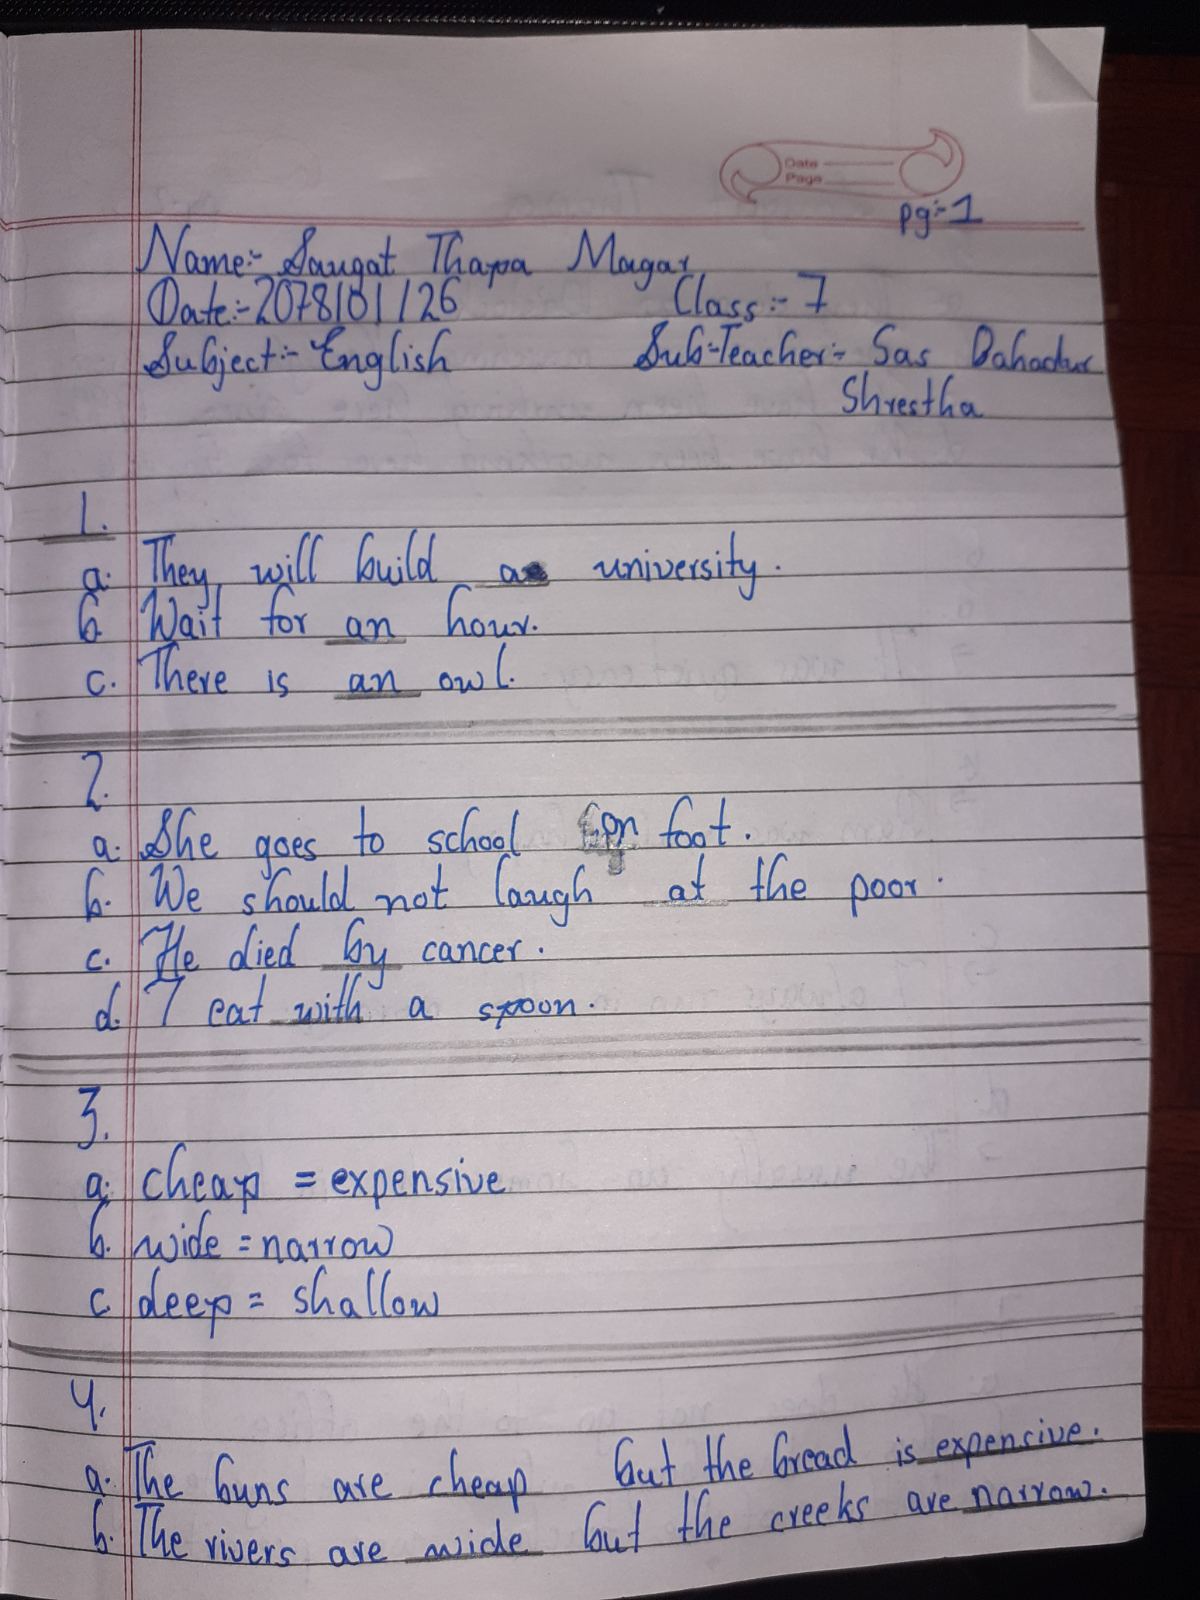 Date
Page
pg:-1
Name:- Saugat Thapa Magar
Date:-2078/01/26 Class:- 7
Subject:- English Sub-Teacher:- Sas Bahadur
Shrestha
1.
a. They will build a university.
b. Wait for an hour.
c. There is an owl.
2.
a. She goes to school on foot.
b. We should not laugh at the poor.
c. He died by cancer.
d. I eat with a spoon.
3.
a. cheap = expensive
b. wide = narrow
c. deep = shallow
4.
a. The buns are cheap but the bread is expensive.
b. The rivers are wide but the creeks are narrow.